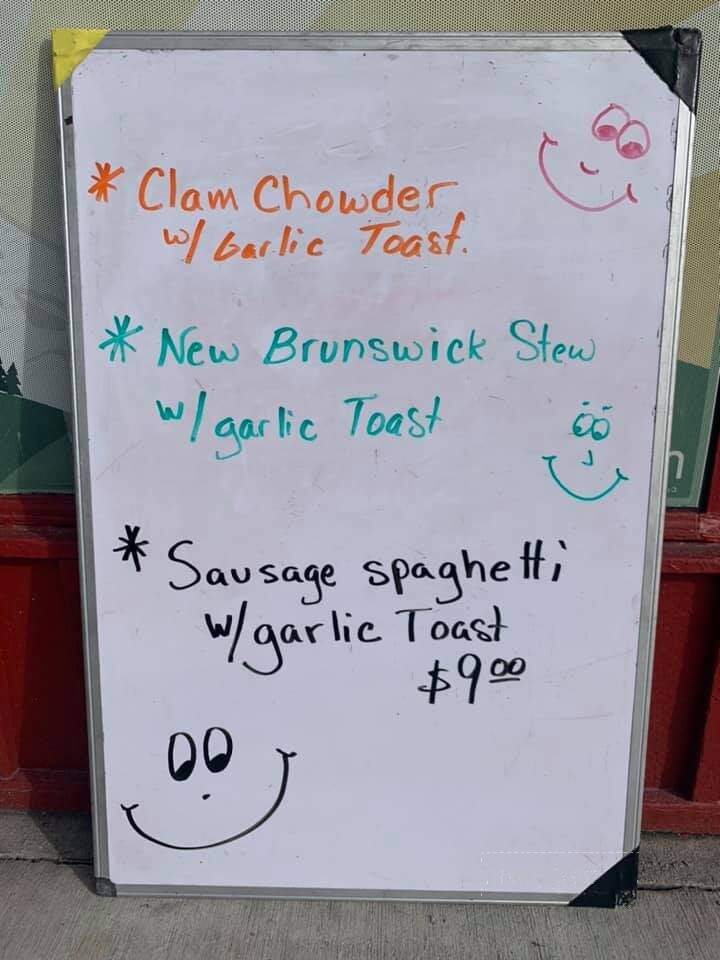 * Clam Chowder
w/ Garlic Toast.
* New Brunswick Stew
w/ garlic Toast
* Sausage spaghetti
w/ garlic Toast
$9.00
n